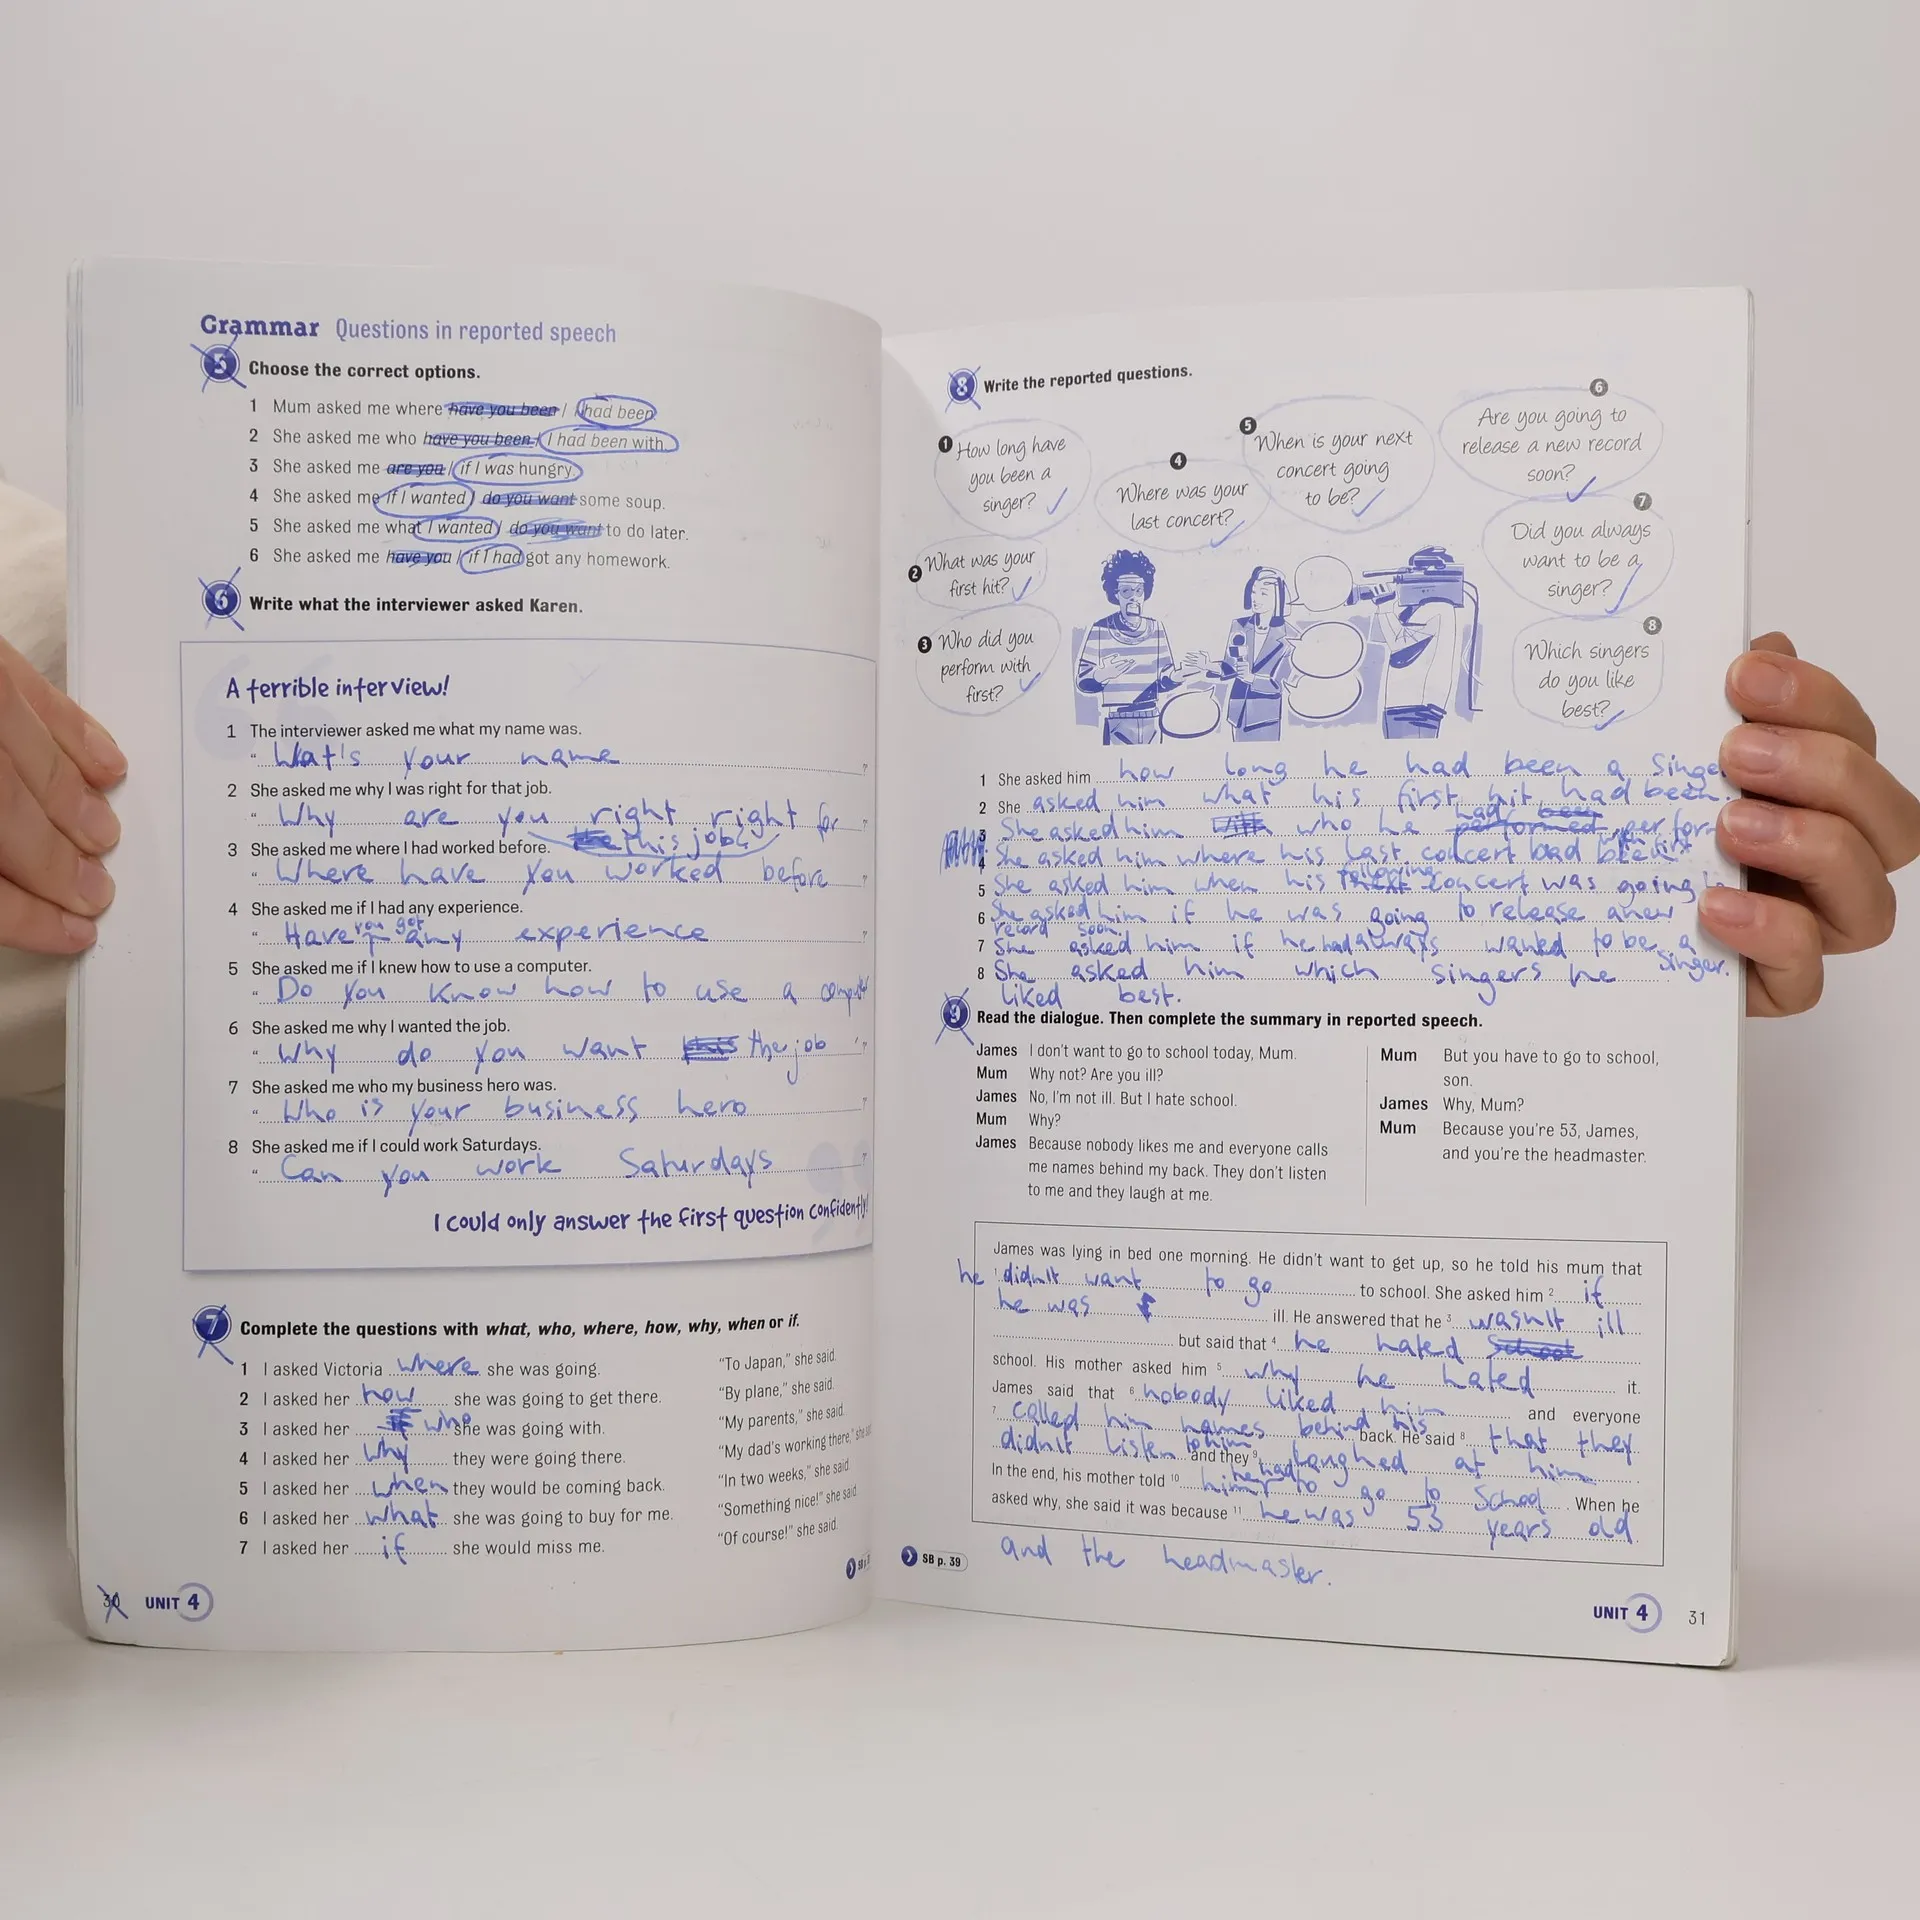 Grammar Questions in reported speech
5 Choose the correct options.
1 Mum asked me where have you been / I had been
2 She asked me who have you been / I had been with.
3 She asked me are you / if I was hungry.
4 She asked me if I wanted / do you want some soup.
5 She asked me what I wanted / do you want to do later.
6 She asked me have you / if I had got any homework.
6 Write what the interviewer asked Karen.
A terrible interview!
1 The interviewer asked me what my name was.
" Wat's your name ?
2 She asked me why I was right for that job.
" Why are you right right for ?
this job?
3 She asked me where I had worked before.
" Where have you worked before ?
4 She asked me if I had any experience.
you got
" Have any experience ?
5 She asked me if I knew how to use a computer.
" Do you know how to use a computer
6 She asked me why I wanted the job.
" Why do you want this the job ?
7 She asked me who my business hero was.
" Who is your business hero ?
8 She asked me if I could work Saturdays.
" Can you work Saturdays ?
I could only answer the first question confidently!
7 Complete the questions with what, who, where, how, why, when or if.
1 I asked Victoria where she was going. "To Japan," she said.
2 I asked her how she was going to get there. "By plane," she said.
3 I asked her if who she was going with. "My parents," she said.
4 I asked her why they were going there. "My dad's working there," she said.
5 I asked her when they would be coming back. "In two weeks," she said.
6 I asked her what she was going to buy for me. "Something nice!" she said.
7 I asked her if she would miss me. "Of course!" she said.
30 UNIT 4
8 Write the reported questions.
1 How long have
you been a
singer?
2 What was your
first hit?
3 Who did you
perform with
first?
4 Where was your
last concert?
5 When is your next
concert going
to be?
6 Are you going to
release a new record
soon?
7 Did you always
want to be a
singer?
8 Which singers
do you like
best?
1 She asked him how long he had been a singe
2 She asked him what his first hit had been.
had been
3 She asked him with who he performed perform
4 She asked him where his last concert had been
5 She asked him when his concert was going
6 She asked him if he was going to release a new
record soon.
7 She asked him if he had always wanted to be a
singer.
8 She asked him which singers he
liked best.
9 Read the dialogue. Then complete the summary in reported speech.
James I don't want to go to school today, Mum.
Mum Why not? Are you ill?
James No, I'm not ill. But I hate school.
Mum Why?
James Because nobody likes me and everyone calls
me names behind my back. They don't listen
to me and they laugh at me.
Mum But you have to go to school,
son.
James Why, Mum?
Mum Because you're 53, James,
and you're the headmaster.
James was lying in bed one morning. He didn't want to get up, so he told his mum that
he 1 didn't want to go to school. She asked him 2 if
he was ill. He answered that he 3 wasn't ill
but said that 4 he hated school
school. His mother asked him 5 why he hated it.
James said that 6 nobody liked him and everyone
7 called him names behind his back. He said 8 that they
didn't listen to him and they 9 laughed at him
he had
In the end, his mother told 10 him to go to School. When he
asked why, she said it was because 11 he was 53 years old
and the headmaster.
SB p. 39
UNIT 4 31